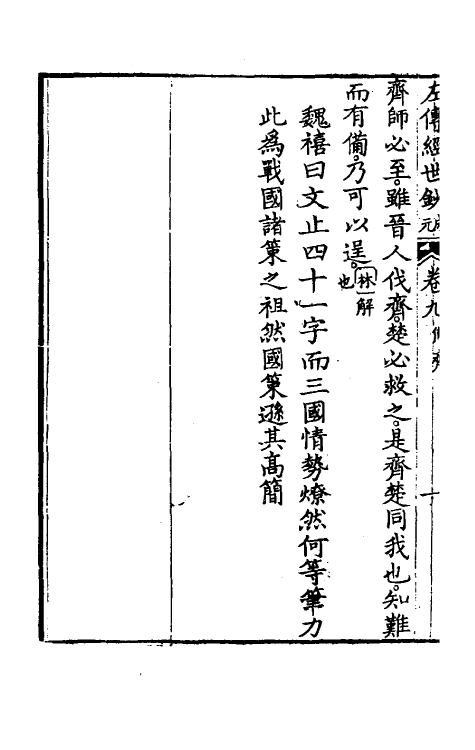 左傳經世鈔 卷九
齊師必至。雖晉人伐齊。楚必救之。是齊楚同我也。知難
而有備。乃可以逞。林解也
魏禧曰文止四十一字而三國情勢燎然何等筆力
此為戰國諸策之祖然國策遜其高簡